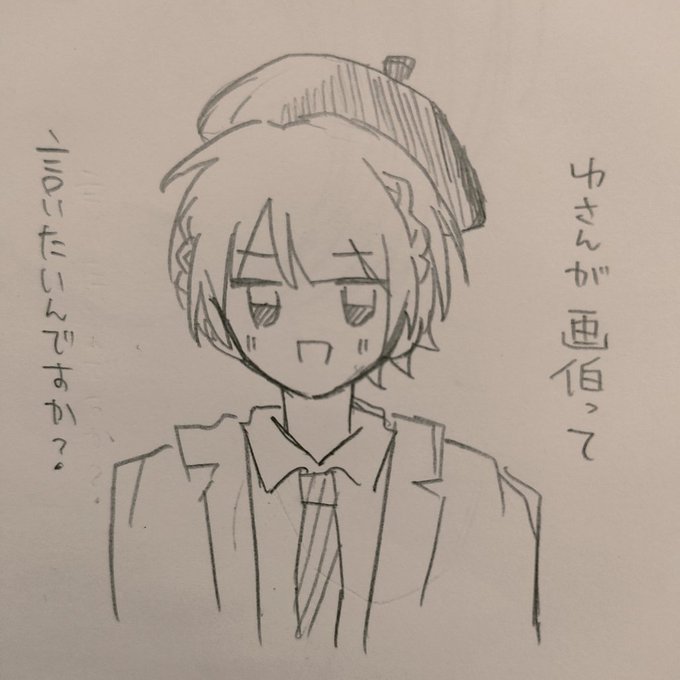 ゆさんが画伯って
言いたいんですか?